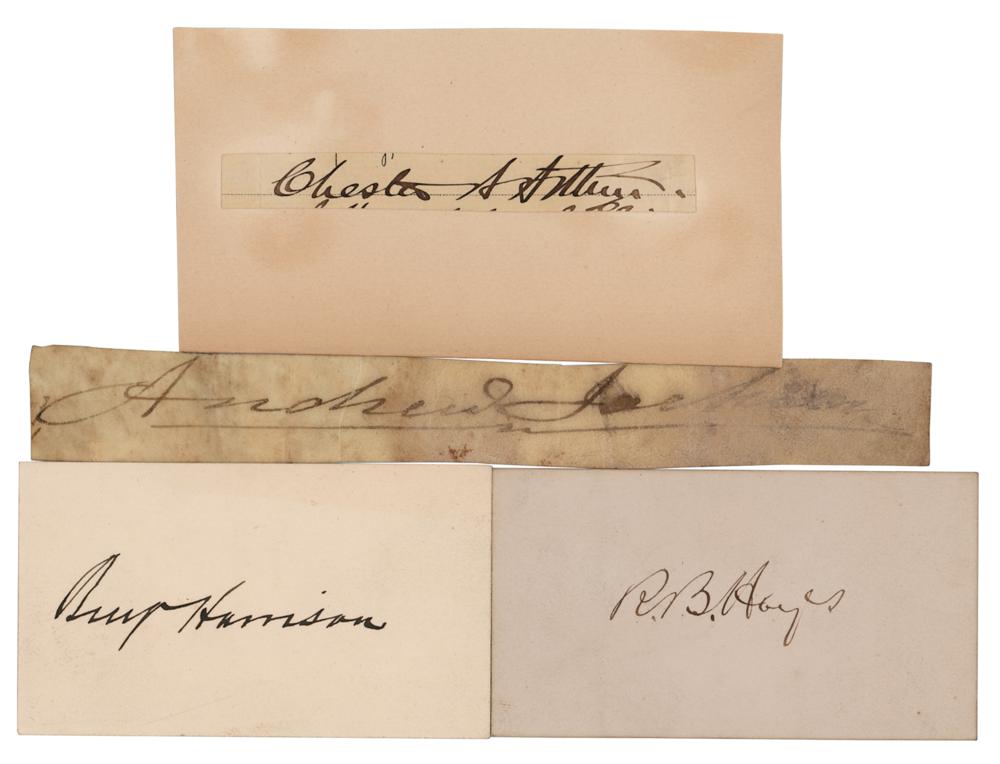 Chester A Arthur.
Andrew Jackson
Benj Harrison
R.B. Hayes